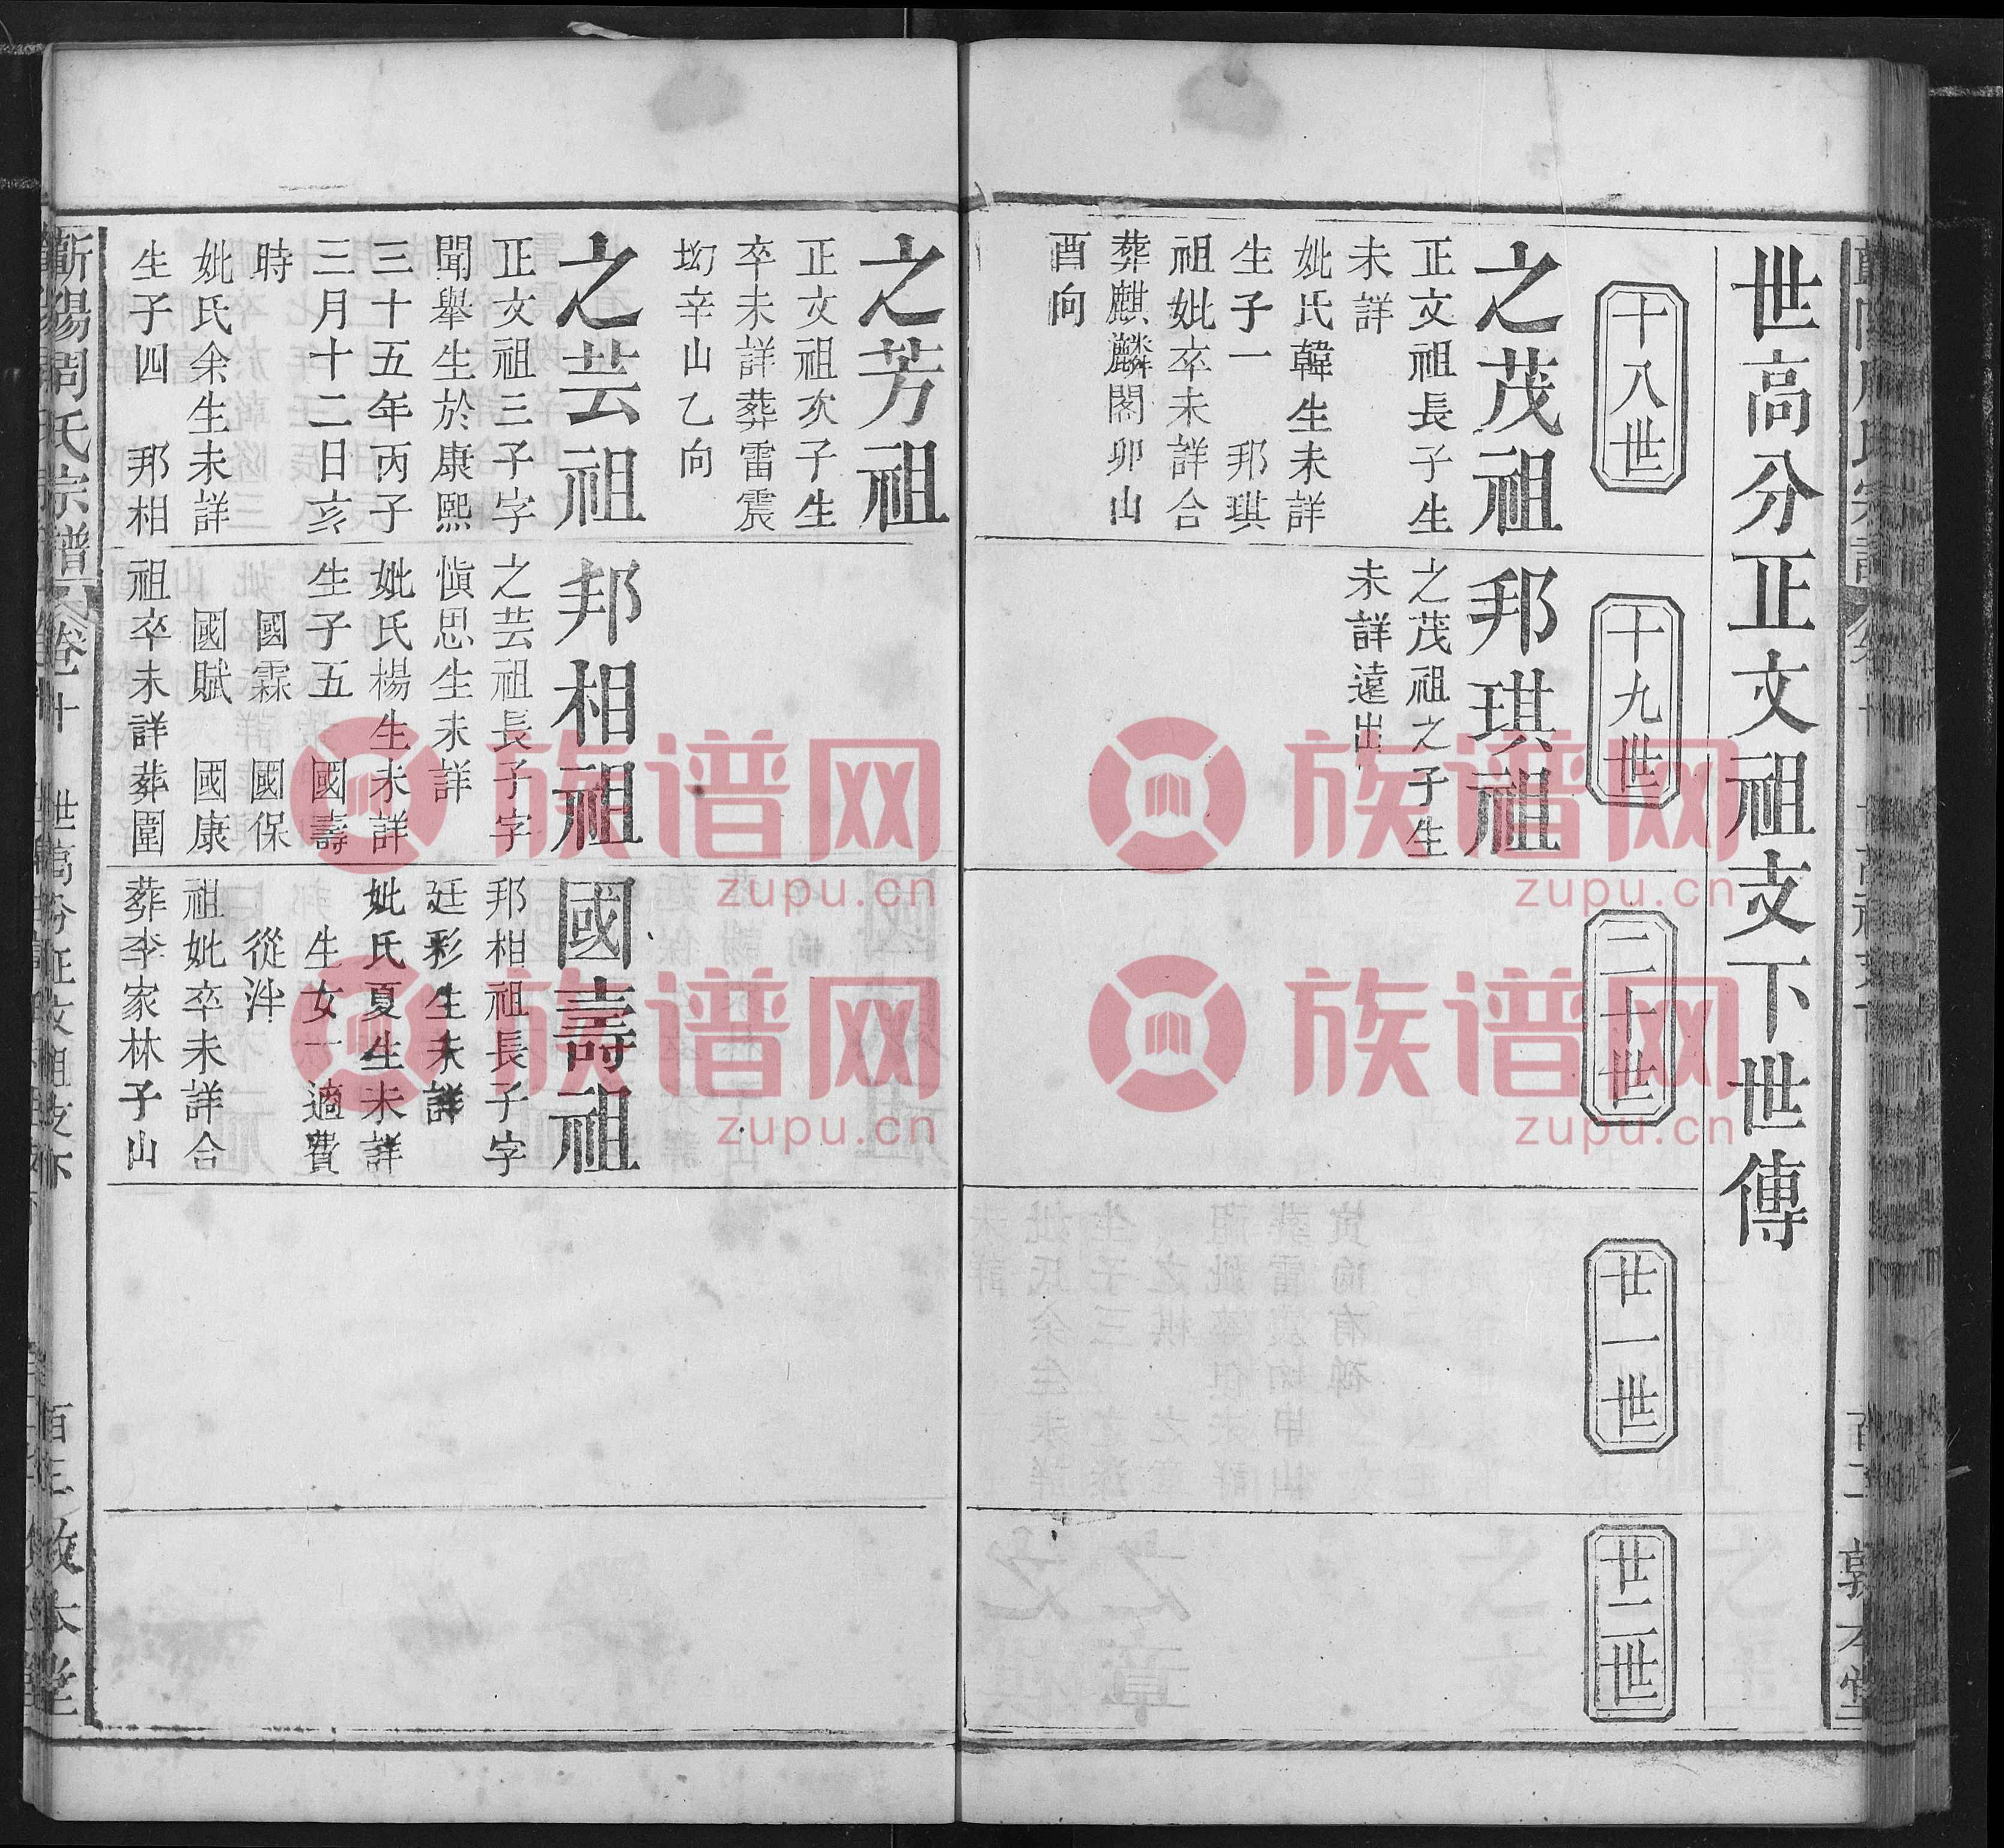 世高分正文祖支下世傳
十八世
十九世
二十世
廿一世
廿二世
之茂祖
正文祖長子生
未詳
妣氏韓生未詳
生子一　邦琪
祖妣卒未詳合
葬麒麟閣卯山
酉向
邦琪祖
之茂祖之子生
未詳遠出
之芳祖
正文祖次子生
卒未詳葬雷震
坳辛山乙向
之芸祖
正文祖三子字
聞舉生於康熙
三十五年丙子
三月十二日亥
時
妣氏余生未詳
生子四　邦相
邦相祖
之芸祖長子字
慎思生未詳
妣氏楊生未詳
生子五　國壽
國霖　國保
國賦　國康
祖卒未詳葬圍
國壽祖
邦相祖長子字
廷彩生未詳
妣氏夏生未詳
生女一適費
從泮
祖妣卒未詳合
葬李家林子山
蘄陽周氏宗譜
卷十
世高分正文祖支下
百三
敦本堂
族谱网
zupu.cn
族谱网
zupu.cn
族谱网
zupu.cn
族谱网
zupu.cn